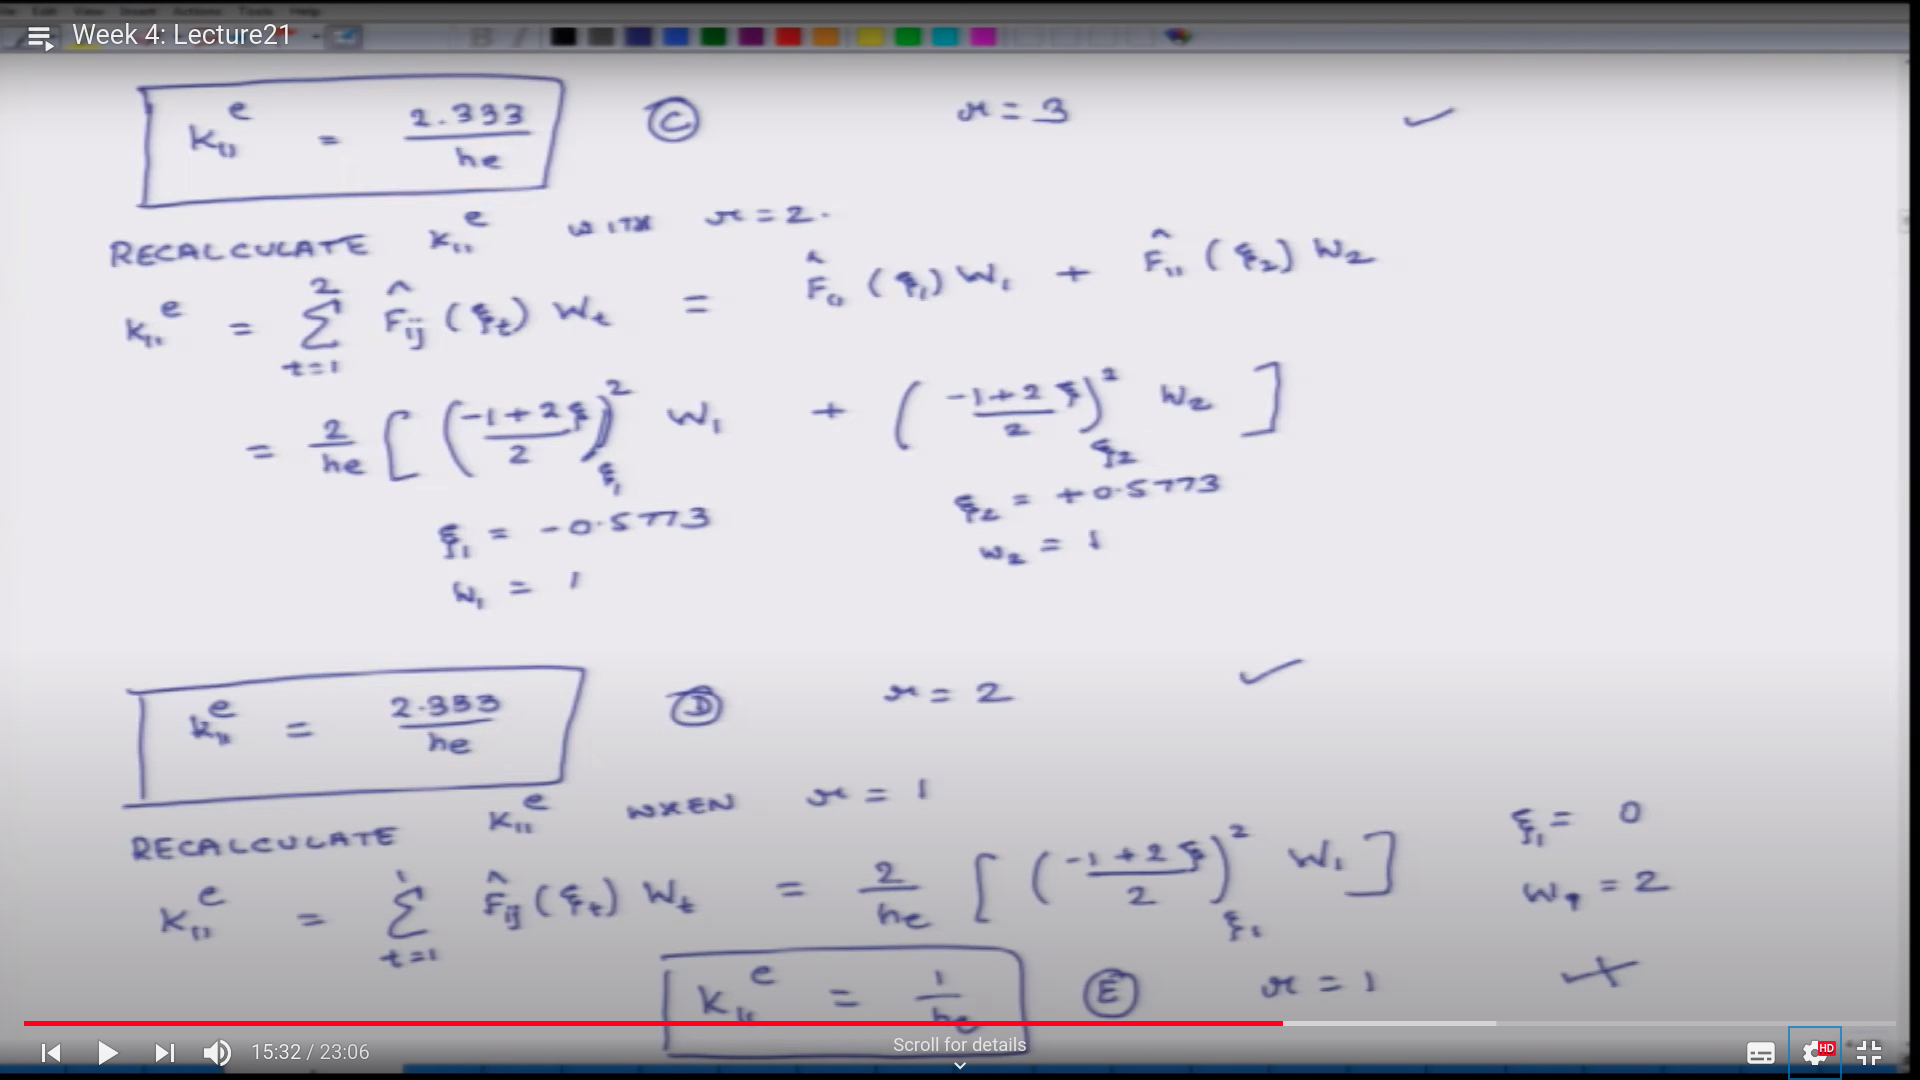 Edit View Insert Actions Tools Help
Week 4: Lecture21
K₁₁ᵉ = 2.333/he Ⓒ r = 3 ✓
RECALCULATE K₁₁ᵉ WITH r = 2.
K₁₁ᵉ = Σ_{t=1}^{2} F̂ij (ξt) Wt = F̂₁₁ (ξ₁) W₁ + F̂₁₁ (ξ₂) W₂
= 2/he [ ((-1+2ξ)/2)²_{ξ₁} W₁ + ((-1+2ξ)/2)²_{ξ₂} W₂ ]
ξ₁ = -0.5773 ξ₂ = +0.5773
W₁ = 1 W₂ = 1
K₁₁ᵉ = 2.333/he Ⓓ r = 2 ✓
RECALCULATE K₁₁ᵉ WHEN r = 1
K₁₁ᵉ = Σ_{t=1}^{1} F̂ij (ξt) Wt = 2/he [ ((-1+2ξ)/2)²_{ξ₁} W₁ ] ξ₁ = 0
W₁ = 2
K₁₁ᵉ = 1/he Ⓔ r = 1
15:32 / 23:06
Scroll for details
HD